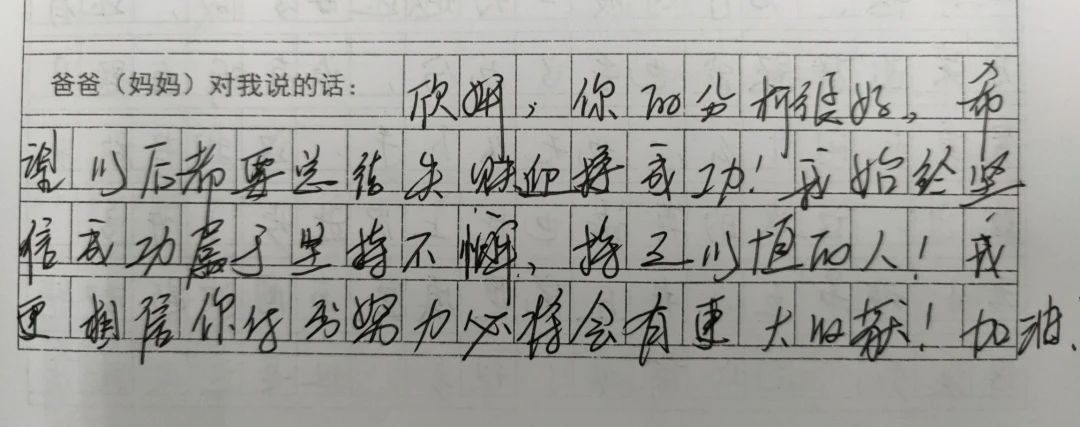 爸爸（妈妈）对我说的话： 欣妍，你的分析很好。希
望以后都要总结失败迎接成功！我始终坚
信成功属于坚持不懈、持之以恒的人！我
更相信你付出努力必将会有更大的收获！加油.